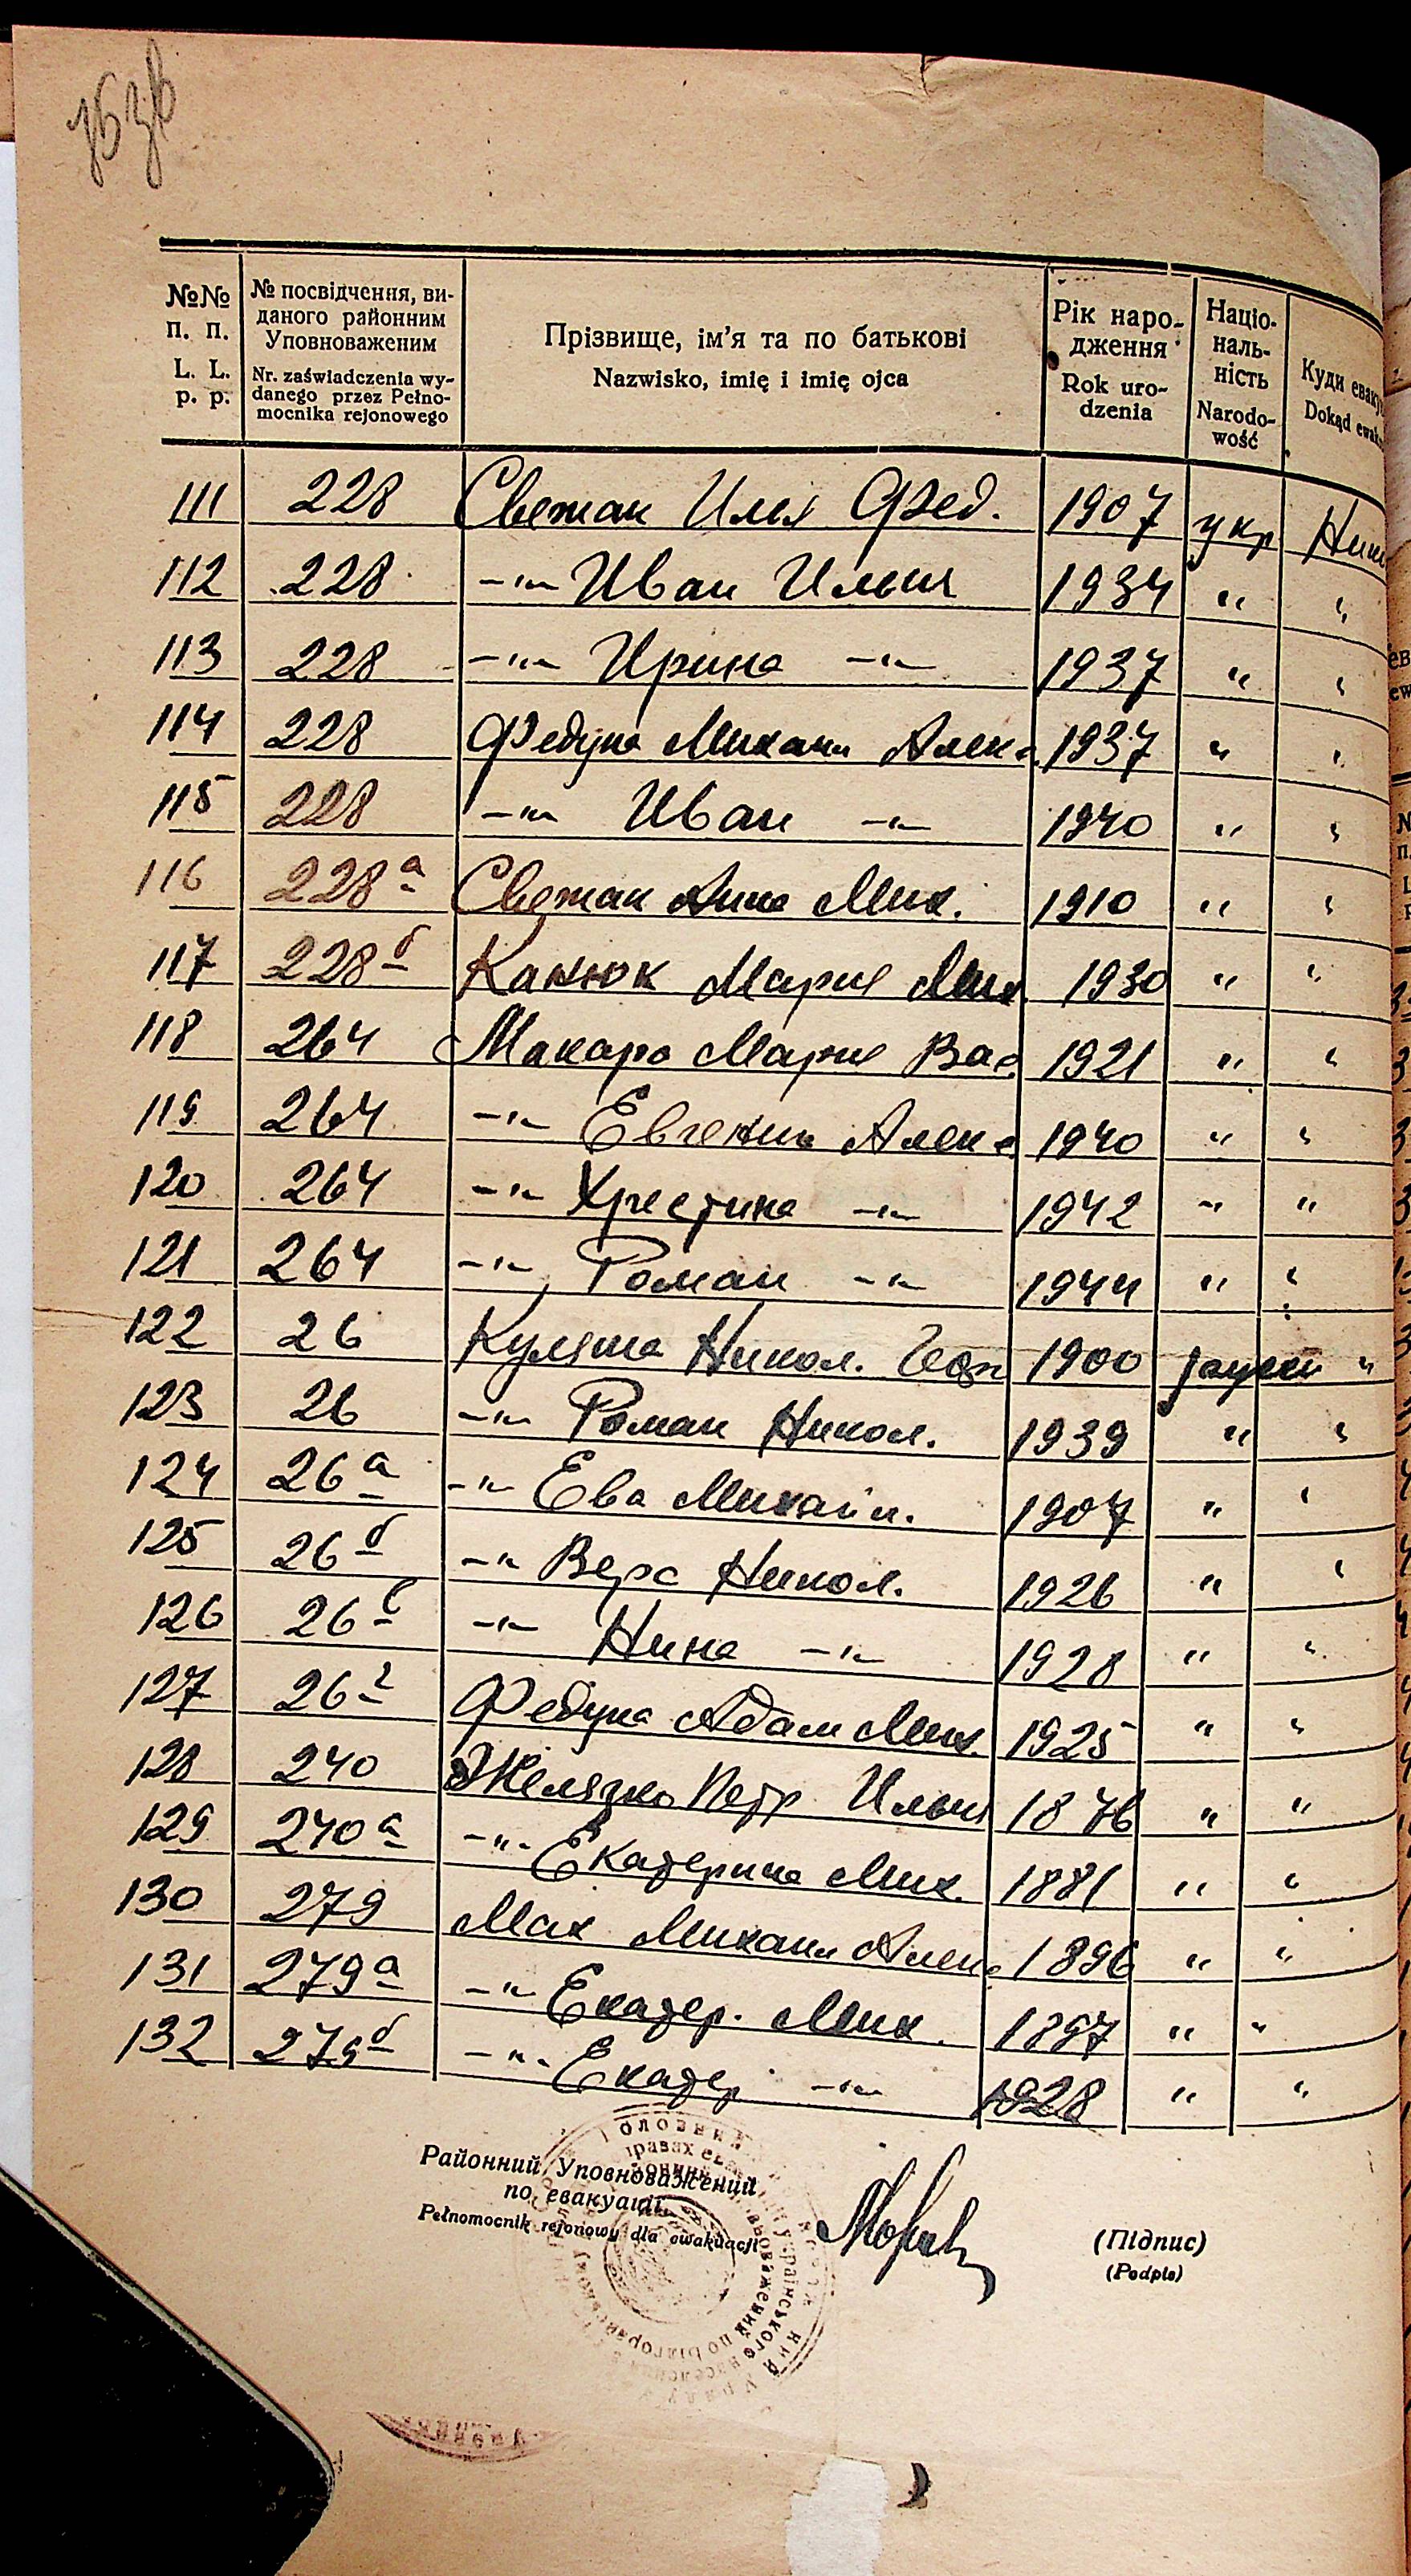 №№ п. п. L. L. p. p.
№ посвідчення, виданого районним Уповноваженим
Nr. zaświadczenia wydanego przez Pełnomocnika rejonowego
Прізвище, ім'я та по батькові
Nazwisko, imię i imię ojca
Рік народження
Rok urodzenia
Національність
Narodowość
Куди еваку
Dokąd ewak
111 228 Светак Илья Фед. 1907 укр
112 228 -"- Иван Ильич 1934 " "
113 228 -"- Ирина -"- 1937 " "
114 228 Федына Михаил Алекс 1937 " "
115 228 -"- Иван -"- 1940 " "
116 228а Светак Анна Мих. 1910 " "
117 228б Канюк Мария Мих. 1930 " "
118 264 Макара Мария Вас. 1921 " "
119 264 -"- Евгения Алекс 1940 " "
120 264 -"- Хрестина -"- 1942 " "
121 264 -"- Роман -"- 1944 " "
122 26 Куляша Никол. 1900 "
123 26 -"- Роман Никол. 1939 " "
124 26а -"- Ева Михайл. 1907 " "
125 26б -"- Вера Никол. 1926 " "
126 26в -"- Нина -"- 1928 " "
127 26г Федына Адам Мих. 1925 " "
128 240 Желязко Петр Ильич 1876 " "
129 240а -"- Екатерина Мих. 1881 " "
130 279 Мах Михаил Алекс 1896 " "
131 279а -"- Екатер. Мих. 1897 " "
132 279б -"- Екатер -"- 1928 " "
Районний Уповноважений
по евакуації
Pełnomocnik rejonowy dla ewakuacji
(Підпис)
(Podpis)